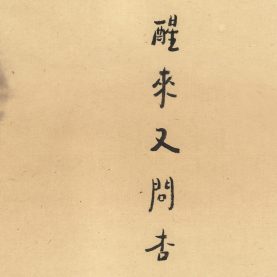 醒來又問杏